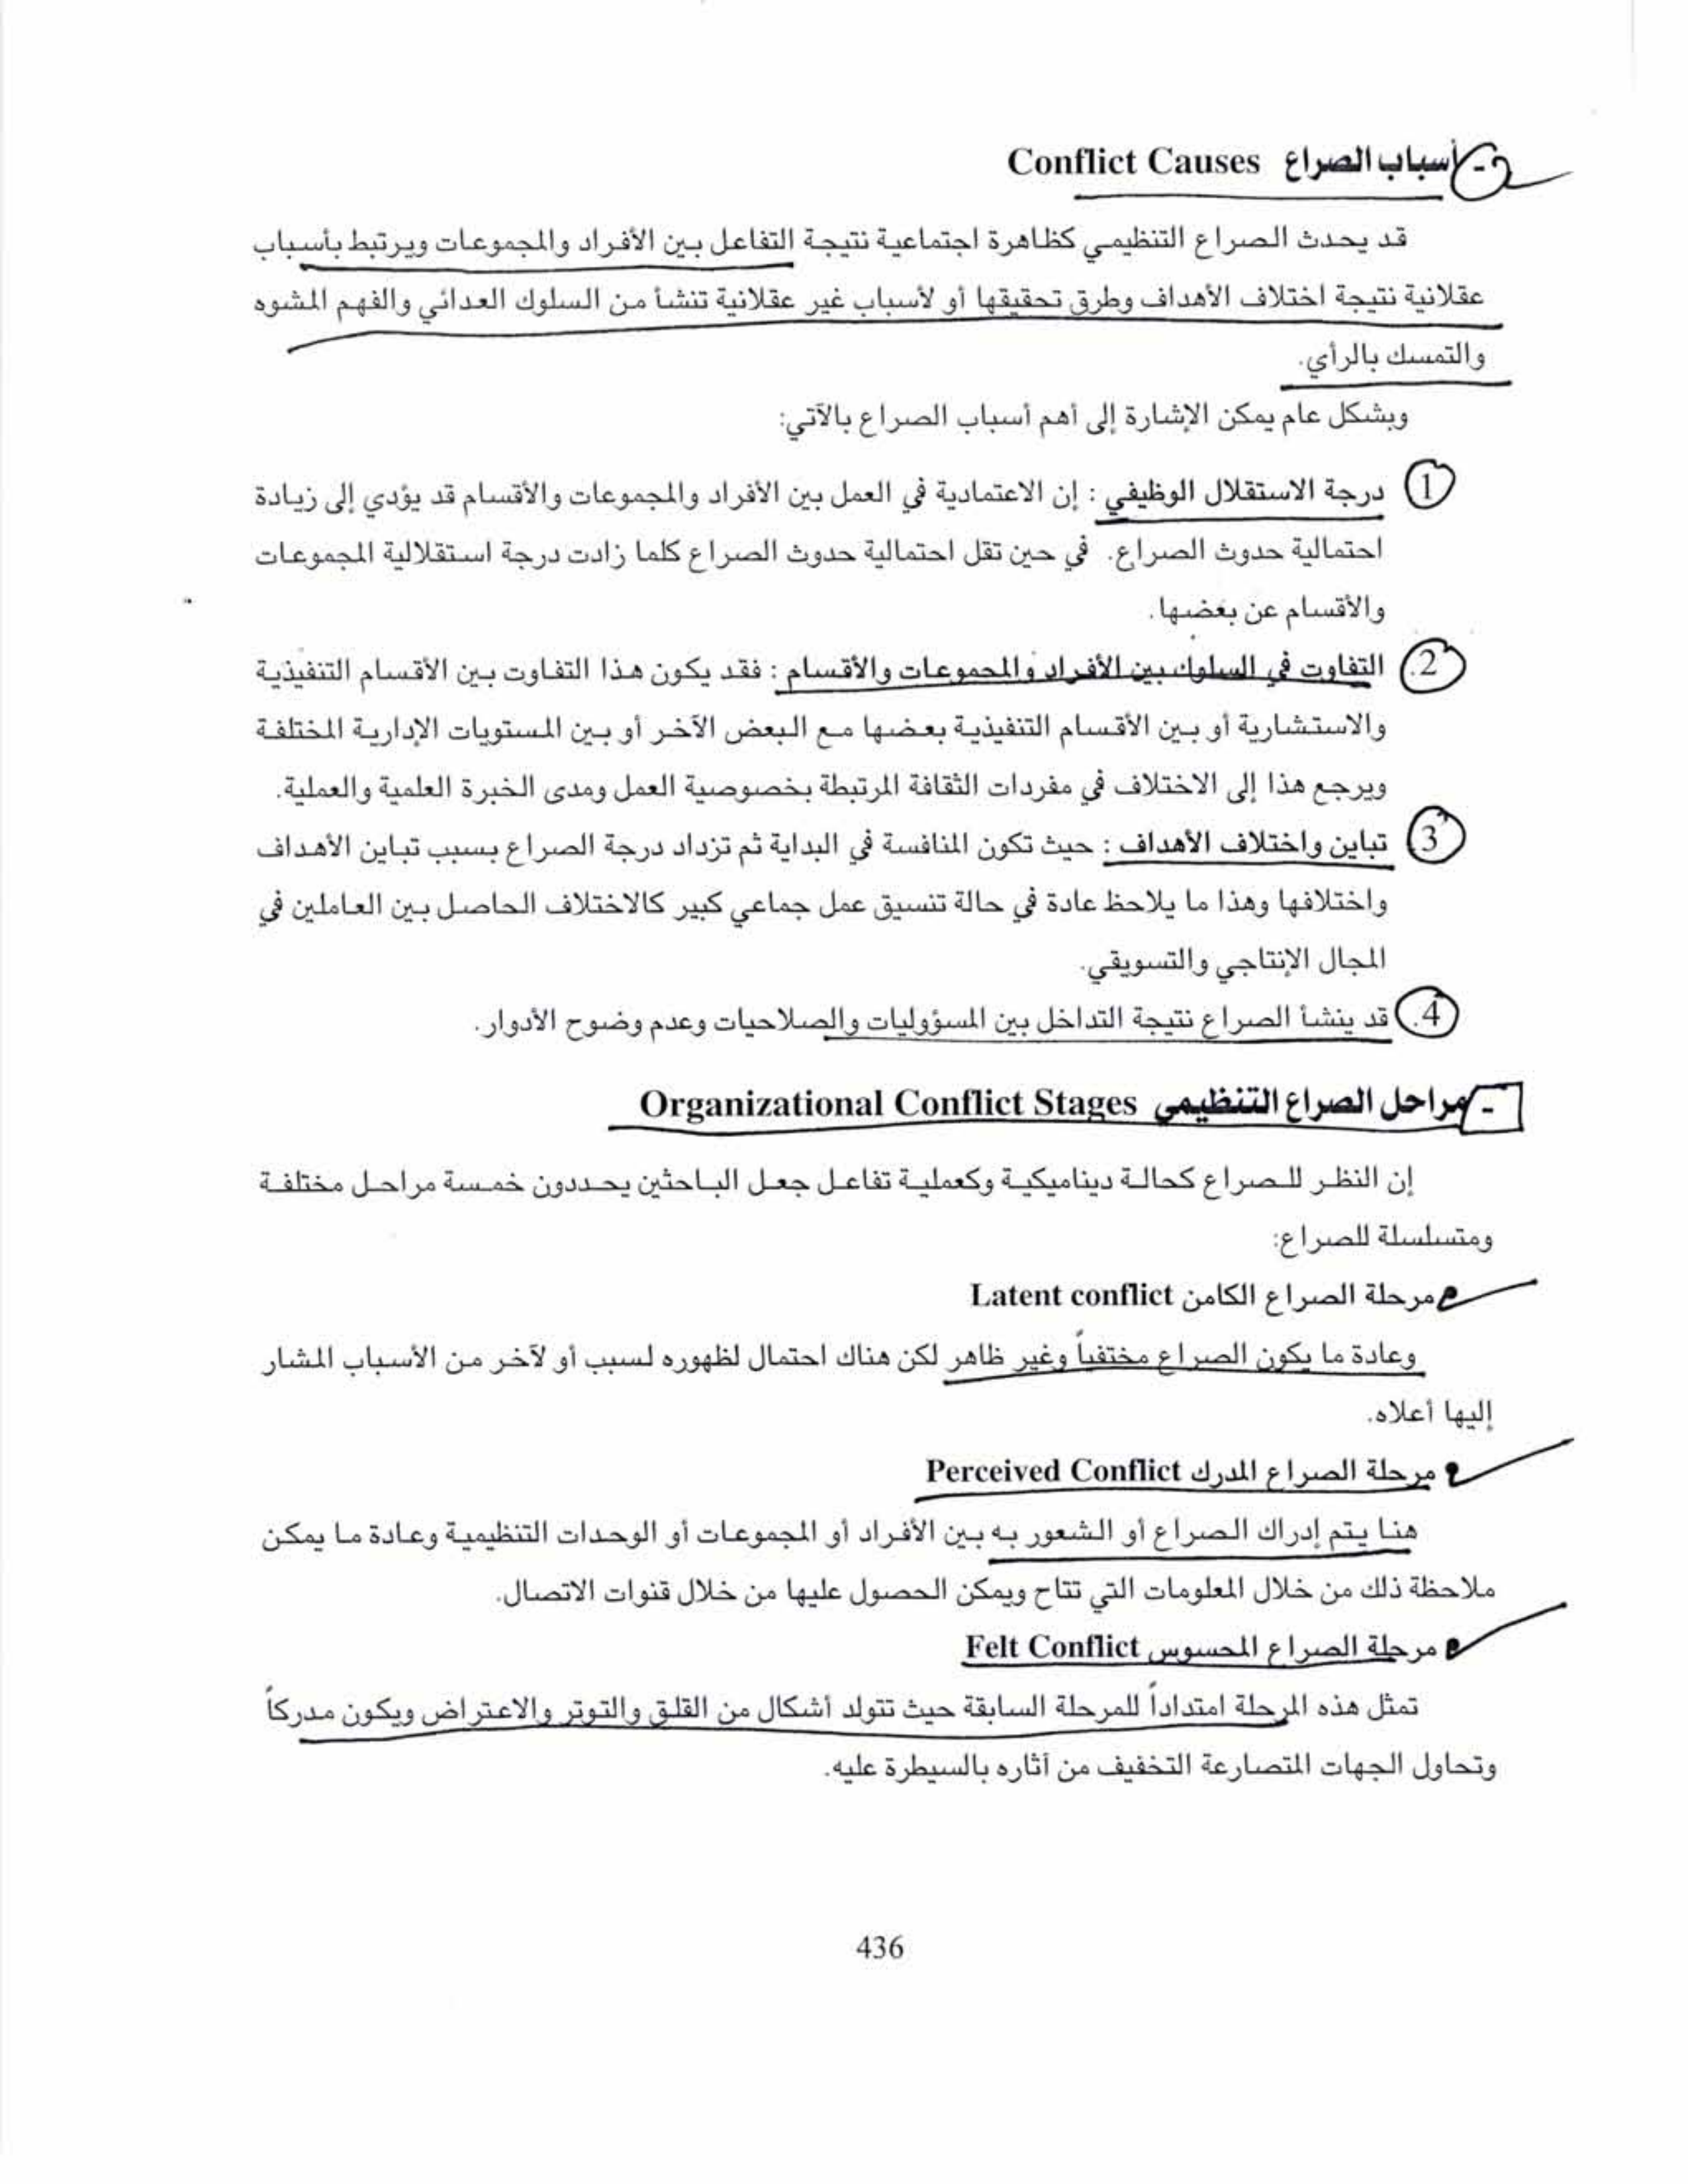 - أسباب الصراع Conflict Causes
قد يحدث الصراع التنظيمي كظاهرة اجتماعية نتيجة التفاعل بين الأفراد والمجموعات ويرتبط بأسباب
عقلانية نتيجة اختلاف الأهداف وطرق تحقيقها أو لأسباب غير عقلانية تنشأ من السلوك العدائي والفهم المشوه
والتمسك بالرأي.
وبشكل عام يمكن الإشارة إلى أهم أسباب الصراع بالآتي:
1. درجة الاستقلال الوظيفي : إن الاعتمادية في العمل بين الأفراد والمجموعات والأقسام قد يؤدي إلى زيادة
احتمالية حدوث الصراع. في حين تقل احتمالية حدوث الصراع كلما زادت درجة استقلالية المجموعات
والأقسام عن بعضها.
2. التفاوت في السلوك بين الأفراد والمجموعات والأقسام : فقد يكون هذا التفاوت بين الأقسام التنفيذية
والاستشارية أو بين الأقسام التنفيذية بعضها مع البعض الآخر أو بين المستويات الإدارية المختلفة
ويرجع هذا إلى الاختلاف في مفردات الثقافة المرتبطة بخصوصية العمل ومدى الخبرة العلمية والعملية.
3. تباين واختلاف الأهداف : حيث تكون المنافسة في البداية ثم تزداد درجة الصراع بسبب تباين الأهداف
واختلافها وهذا ما يلاحظ عادة في حالة تنسيق عمل جماعي كبير كالاختلاف الحاصل بين العاملين في
المجال الإنتاجي والتسويقي.
4. قد ينشأ الصراع نتيجة التداخل بين المسؤوليات والصلاحيات وعدم وضوح الأدوار.
- مراحل الصراع التنظيمي Organizational Conflict Stages
إن النظر للصراع كحالة ديناميكية وكعملية تفاعل جعل الباحثين يحددون خمسة مراحل مختلفة
ومتسلسلة للصراع:
• مرحلة الصراع الكامن Latent conflict
وعادة ما يكون الصراع مختفياً وغير ظاهر لكن هناك احتمال لظهوره لسبب أو لآخر من الأسباب المشار
إليها أعلاه.
• مرحلة الصراع المدرك Perceived Conflict
هنا يتم إدراك الصراع أو الشعور به بين الأفراد أو المجموعات أو الوحدات التنظيمية وعادة ما يمكن
ملاحظة ذلك من خلال المعلومات التي تتاح ويمكن الحصول عليها من خلال قنوات الاتصال.
• مرحلة الصراع المحسوس Felt Conflict
تمثل هذه المرحلة امتداداً للمرحلة السابقة حيث تتولد أشكال من القلق والتوتر والاعتراض ويكون مدركاً
وتحاول الجهات المتصارعة التخفيف من آثاره بالسيطرة عليه.
436